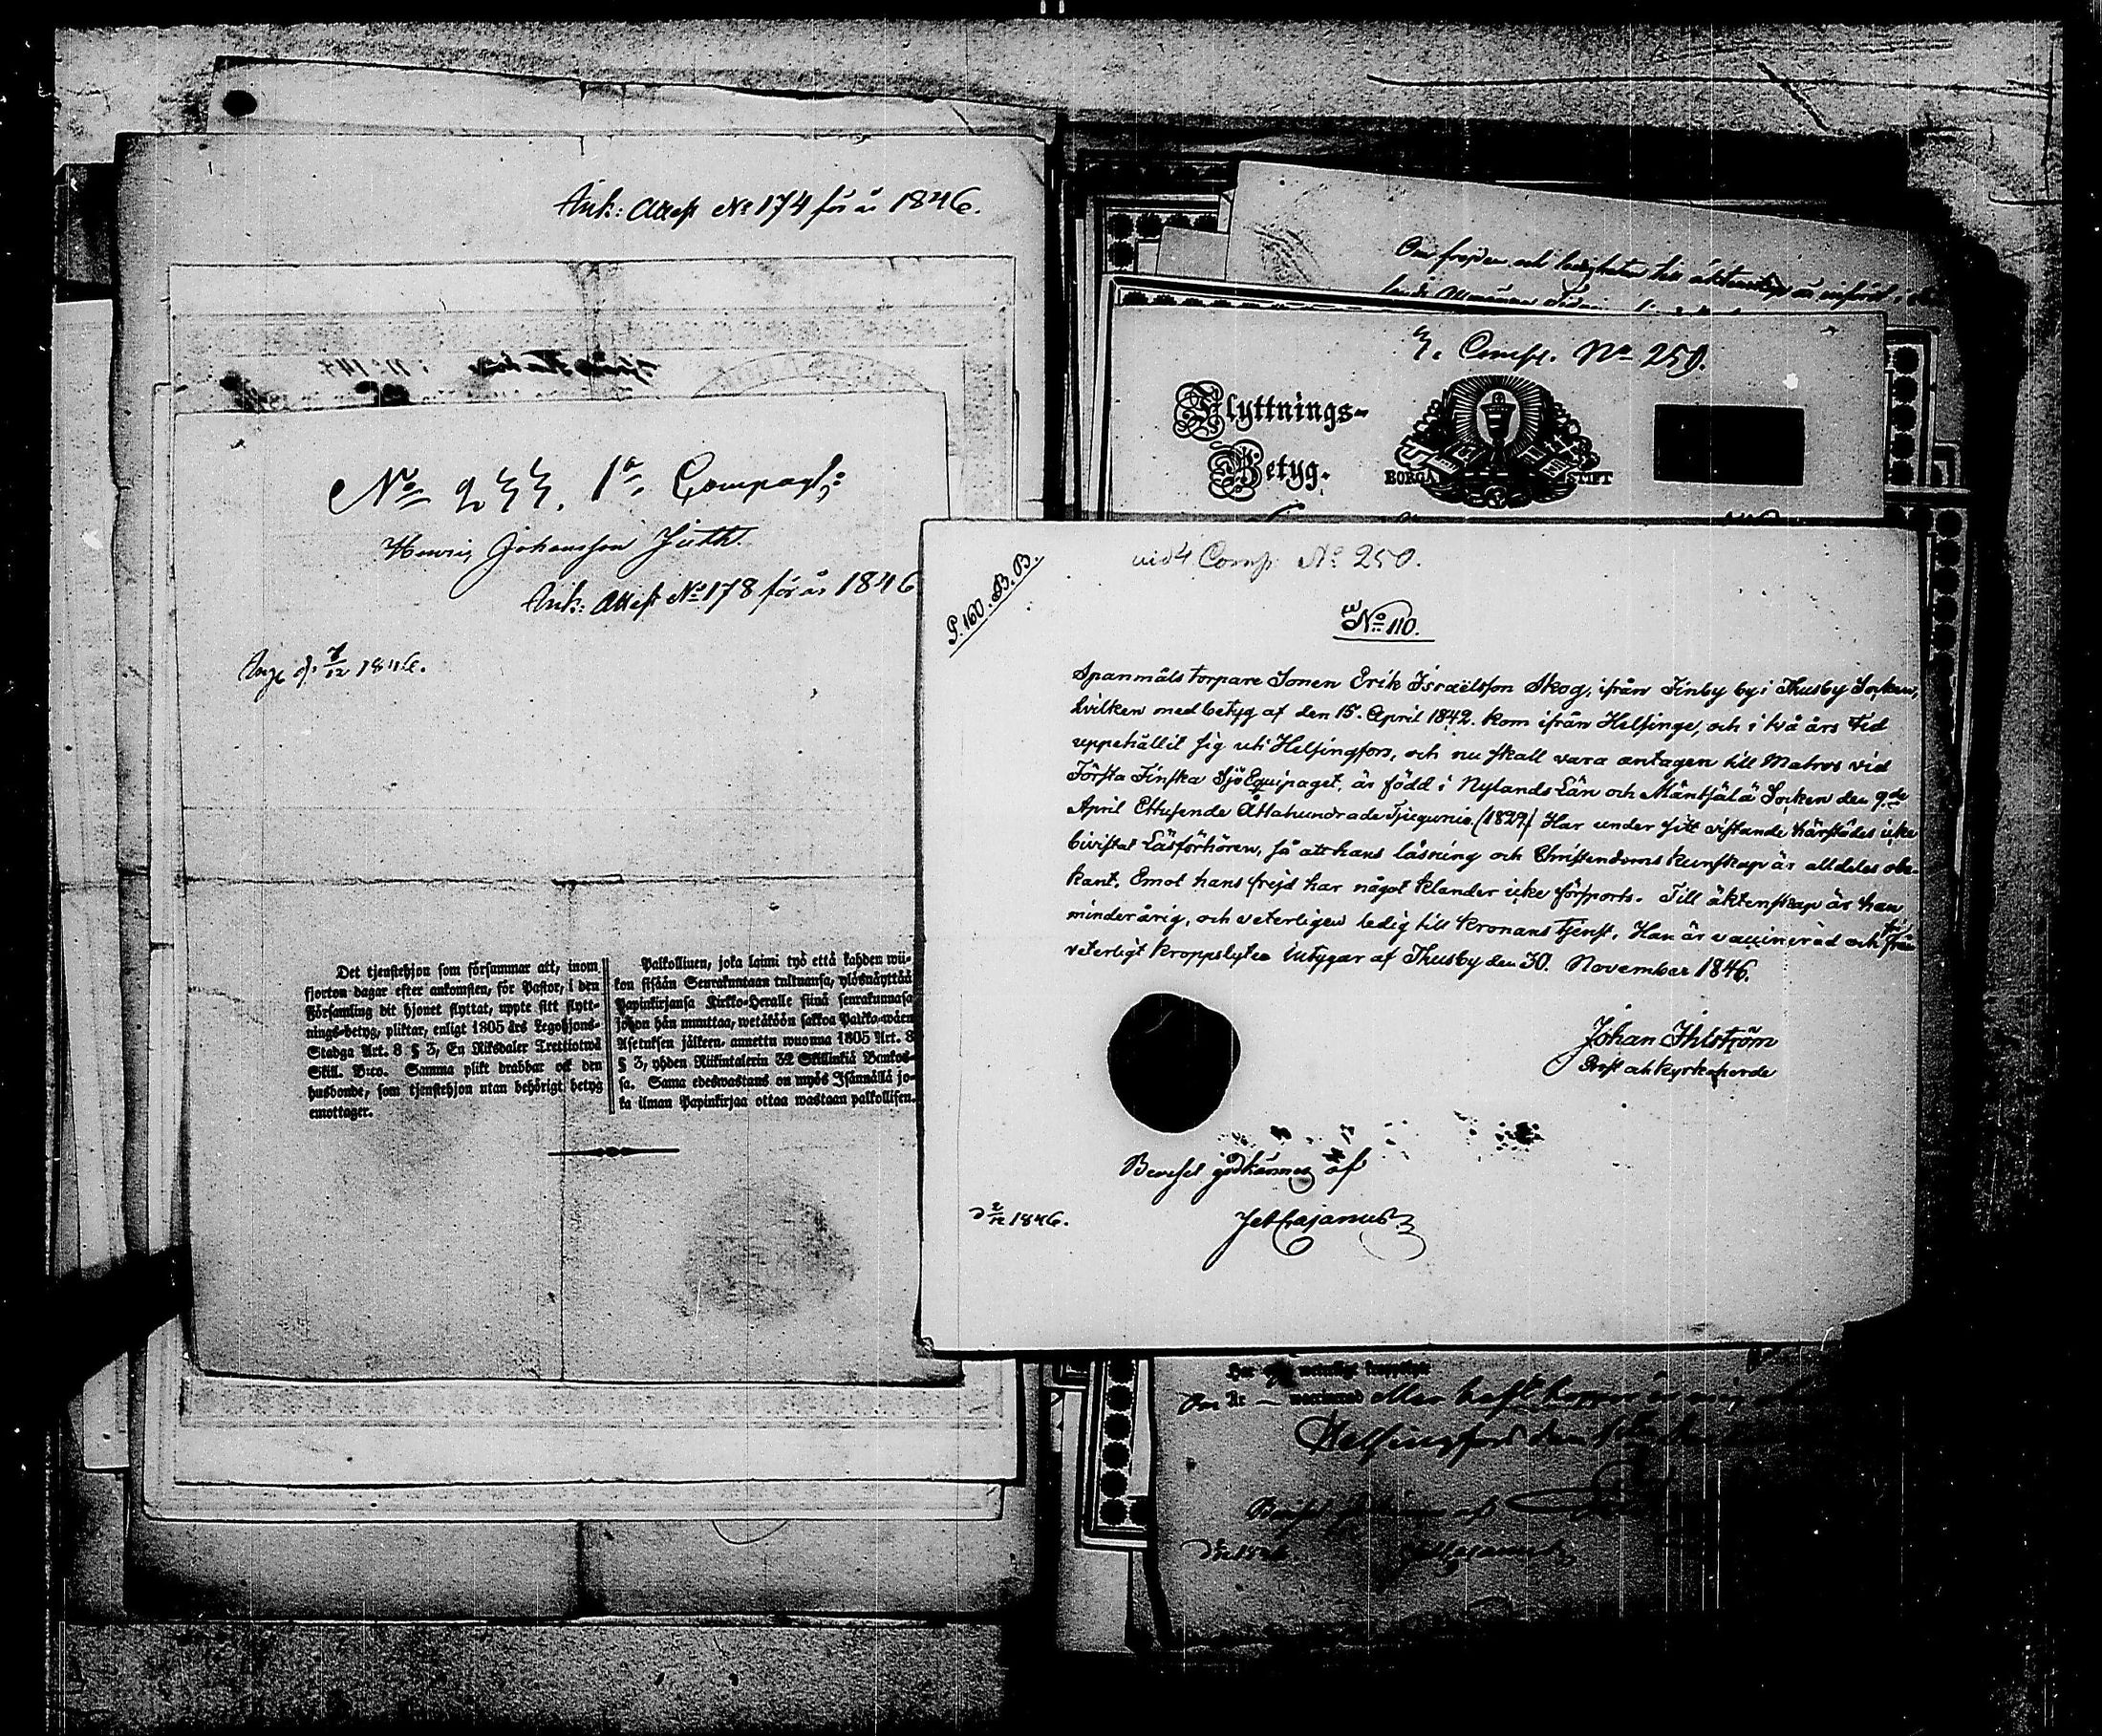 Ank: Attest No 174 för år 1846.
No 233. 1a Compagt:
Henric Johansson Juth.
Ank: Attest No 178 för år 1846
1846.
Det tjenstehjon som försummar att, inom
fjorton dagar efter ankomsten, för Pastor, i den
Församling dit hjonet flyttat, uppte sitt flytt-
nings-betyg, pliktar, enligt 1805 års Legohjons-
Stadga Art. 8 § 3, En Riksdaler Trettiotwå
Skill. B:co. Samma plikt drabbar ock den
husbonde, som tjenstehjon utan behörigt betyg
emottager.
Palkollinen, joka laimi lyö että kahden wii-
kon sisään Seurakuntaan tultuansa, ylösnäyttää
Papinkirjansa Kirkko-Heralle siinä seurakunnasa
johon hän muuttaa, wetäköön sakkoa Palkka-wäen
Asetuksen jälkeen, annettu wuonna 1805 Art. 8
§ 3, yhden Riikintalerin 32 Skillinkiä Bankos-
sa. Sama edeswastaus on myös Isännällä jo-
ka ilman Papinkirjaa ottaa wastaan palkollisen.
Om frejden och ledigheten till äktenskap
Comp. No 250.
Flyttnings-
Betyg.
BORGÅ STIFT
P. 160. B. B.
vid 4 Comp. No 250.
No 110.
Spanmåls torpare Sonen Erik Israëlsson Skog, ifrån Finby by i Thusby Socken,
hvilken med betyg af den 15. April 1842. kom ifrån Helsinge, och i två års tid
uppehållit sig uti Helsingfors, och nu skall vara antagen till Matros vid
Första Finska SjöEquipaget, är född i Nylands Län och Mäntsälä Socken den 9de
April Ettusende Åttahundrade Tjugunio. (1829) Har under sitt vistande härstädes icke
bivistat Läsförhören, så att hans läsning och Christendoms kunskap är alldeles obe-
kant. Emot hans frejd har något klander icke försports. Till äktenskap är han
minderårig, och veterligen ledig till Kronans tjenst. Han är vaccinerad och fri från
veterligt kroppslyte. Intygar af Thusby den 30. November 1846.
Johan Ihlström
Prost och kyrkoherde
Beviset godkännes af
d 2/12 1846.
Cajanus
Har veterligt kroppslyte
Är — vaccinerad eller haft koppor
Helsingfors den